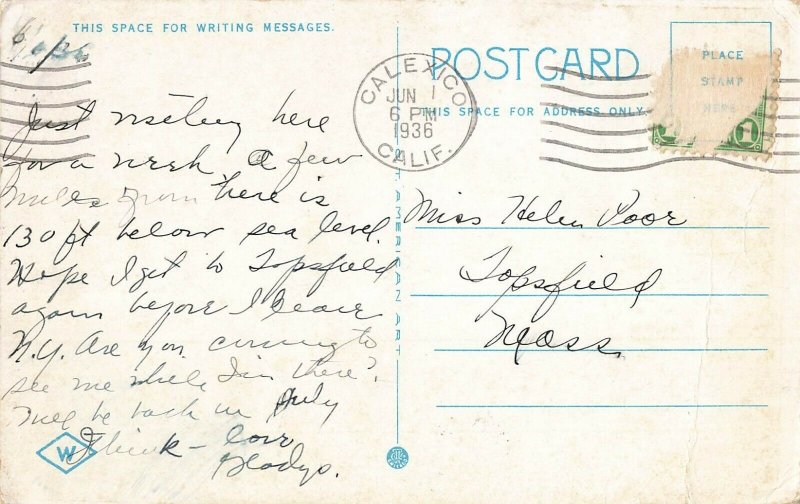 THIS SPACE FOR WRITING MESSAGES.
6/1/36
Just resting here
for a week. A few
miles from here is
130 ft below sea level.
Hope I get to Topsfield
again before I leave
N.Y. Are you coming to
see me while I'm there?
will be back in July
I think – love
Gladys.
W
POST CARD
THIS SPACE FOR ADDRESS ONLY
CALEXICO
JUN 1
6 PM
1936
CALIF.
PLACE
STAMP
HERE
1
T AMERICAN ART
Miss Helen Poor
Topsfield
Mass.